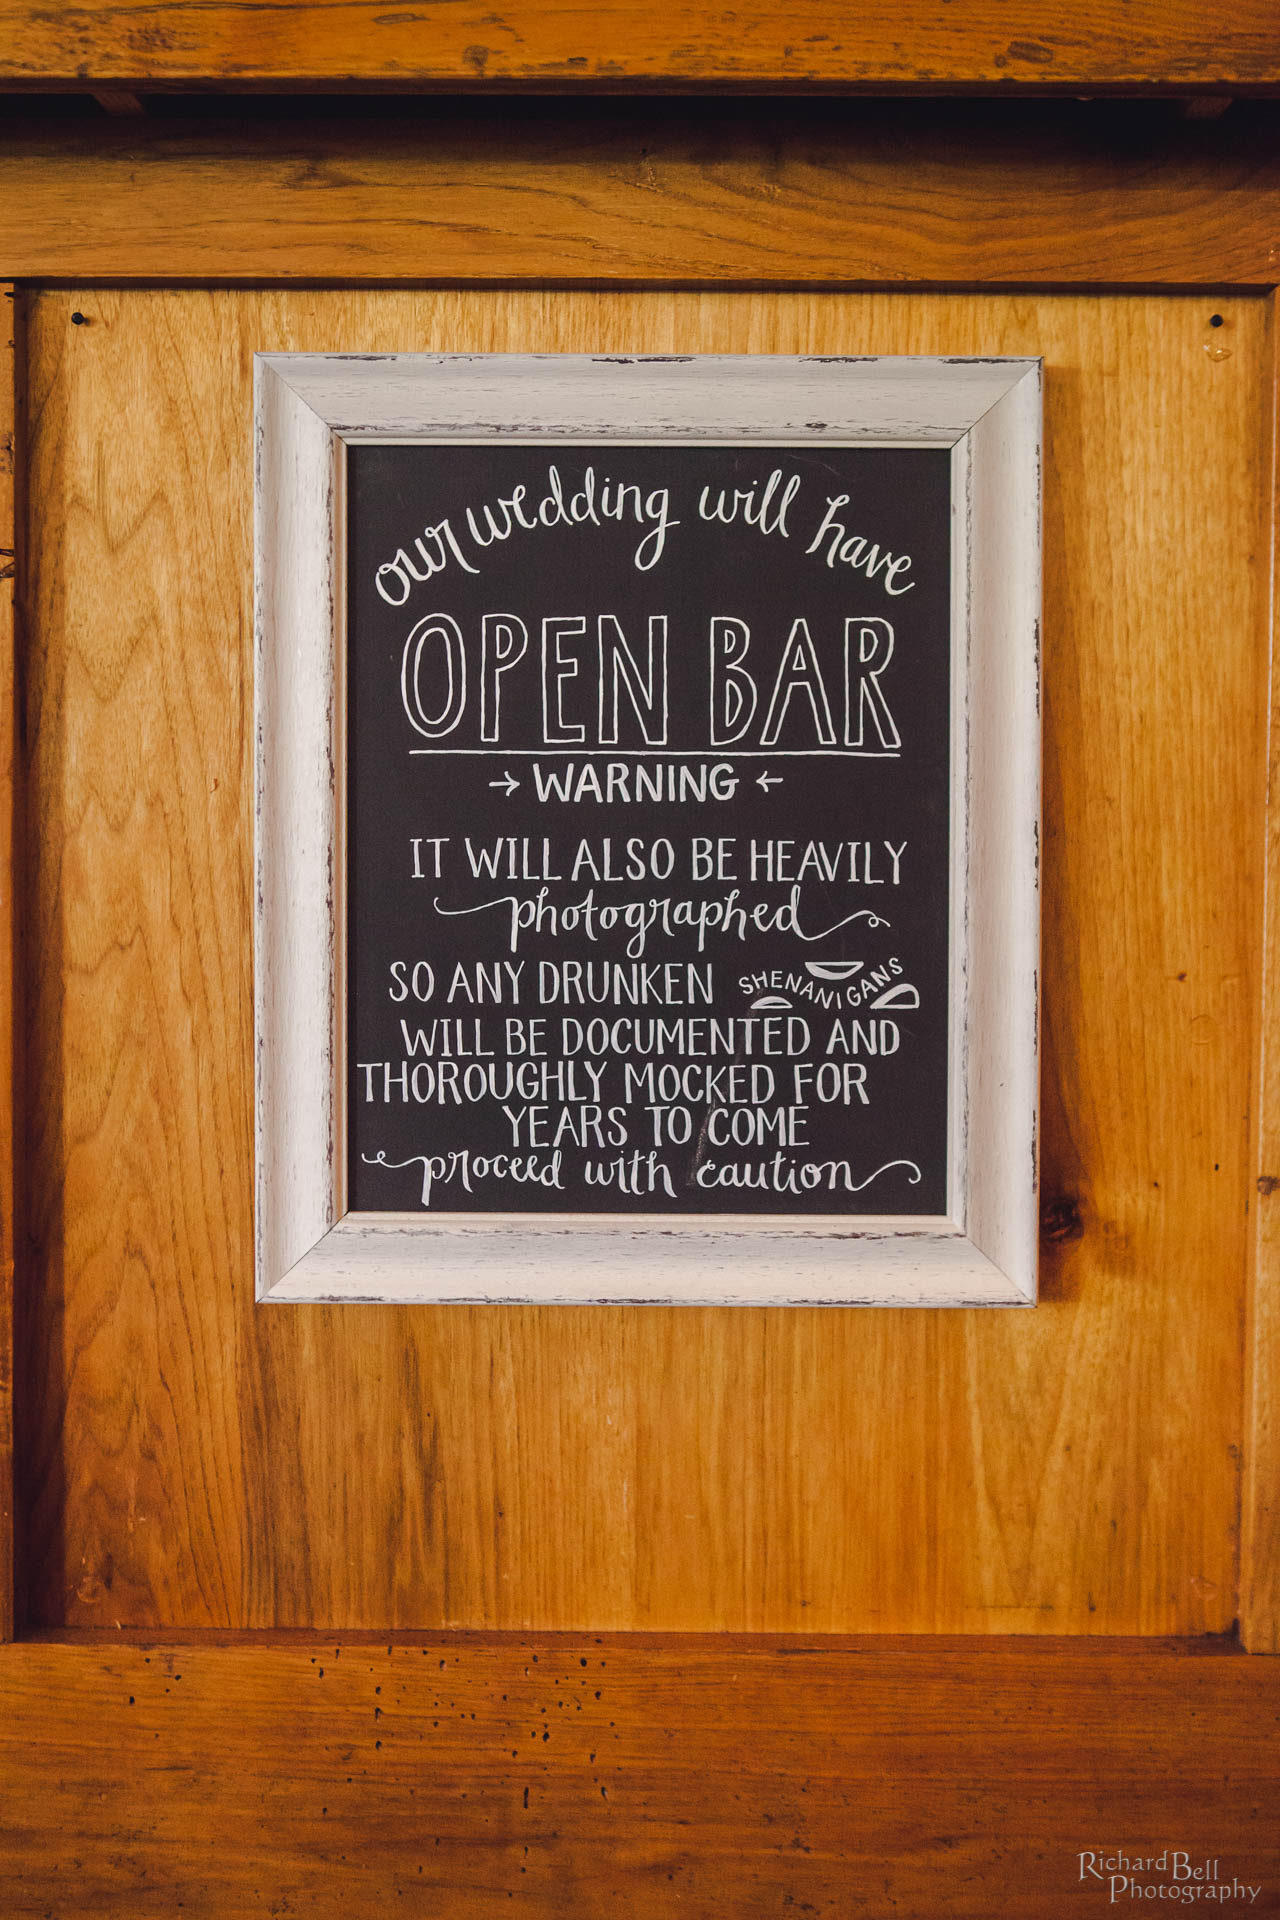 our wedding will have
OPEN BAR
→ WARNING ←
IT WILL ALSO BE HEAVILY
photographed
SO ANY DRUNKEN SHENANIGANS
WILL BE DOCUMENTED AND
THOROUGHLY MOCKED FOR
YEARS TO COME
proceed with caution
Richard Bell
Photography